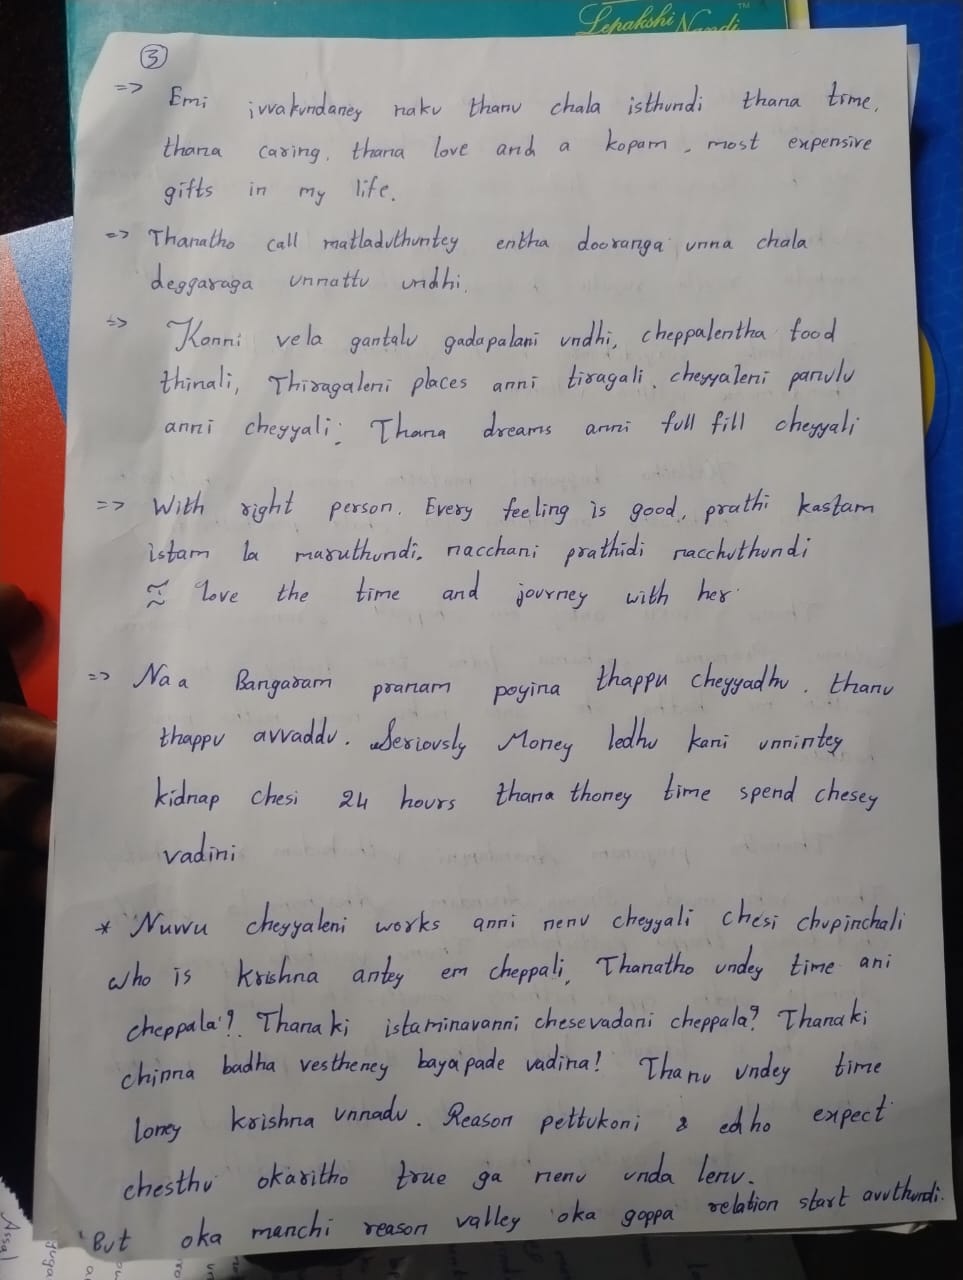 Lepakshi Nandi TM
3
=> Emi ivvakundaney naku thanu chala isthundi thana time,
thana caring, thana love and a kopam, most expensive
gifts in my life.
=> Thanatho call matladuthuntey entha dooranga unna chala
deggaraga unnattu undhi.
=> Konni vela gantalu gadapalani undhi, cheppalentha food
thinali, Thiragaleni places anni tiragali, cheyyaleni panulu
anni cheyyali; Thana dreams anni full fill cheyyali
=> With right person. Every feeling is good, prathi kastam
istam la maruthundi. nacchani prathidi nacchuthundi
love the time and journey with her
=> Naa Bangaram pranam poyina thappu cheyyadhu. thanu
thappu avvaddu. Seriously Money ledhu kani unnintey
kidnap chesi 24 hours thana thoney time spend chesey
vadini
* Nuwu cheyyaleni works anni nenu cheyyali chesi chupinchali
who is krishna antey em cheppali, Thanatho undey time ani
cheppala'? Thanaki istaminavanni chesevadani cheppala? Thanaki
chinna badha vestheney bayapade vadina! Thanu undey time
loney krishna unnadu. Reason pettukoni & edho expect
chesthu okaritho true ga nenu unda lenu.
But oka manchi reason valley oka goppa relation start avuthundi.
Assal